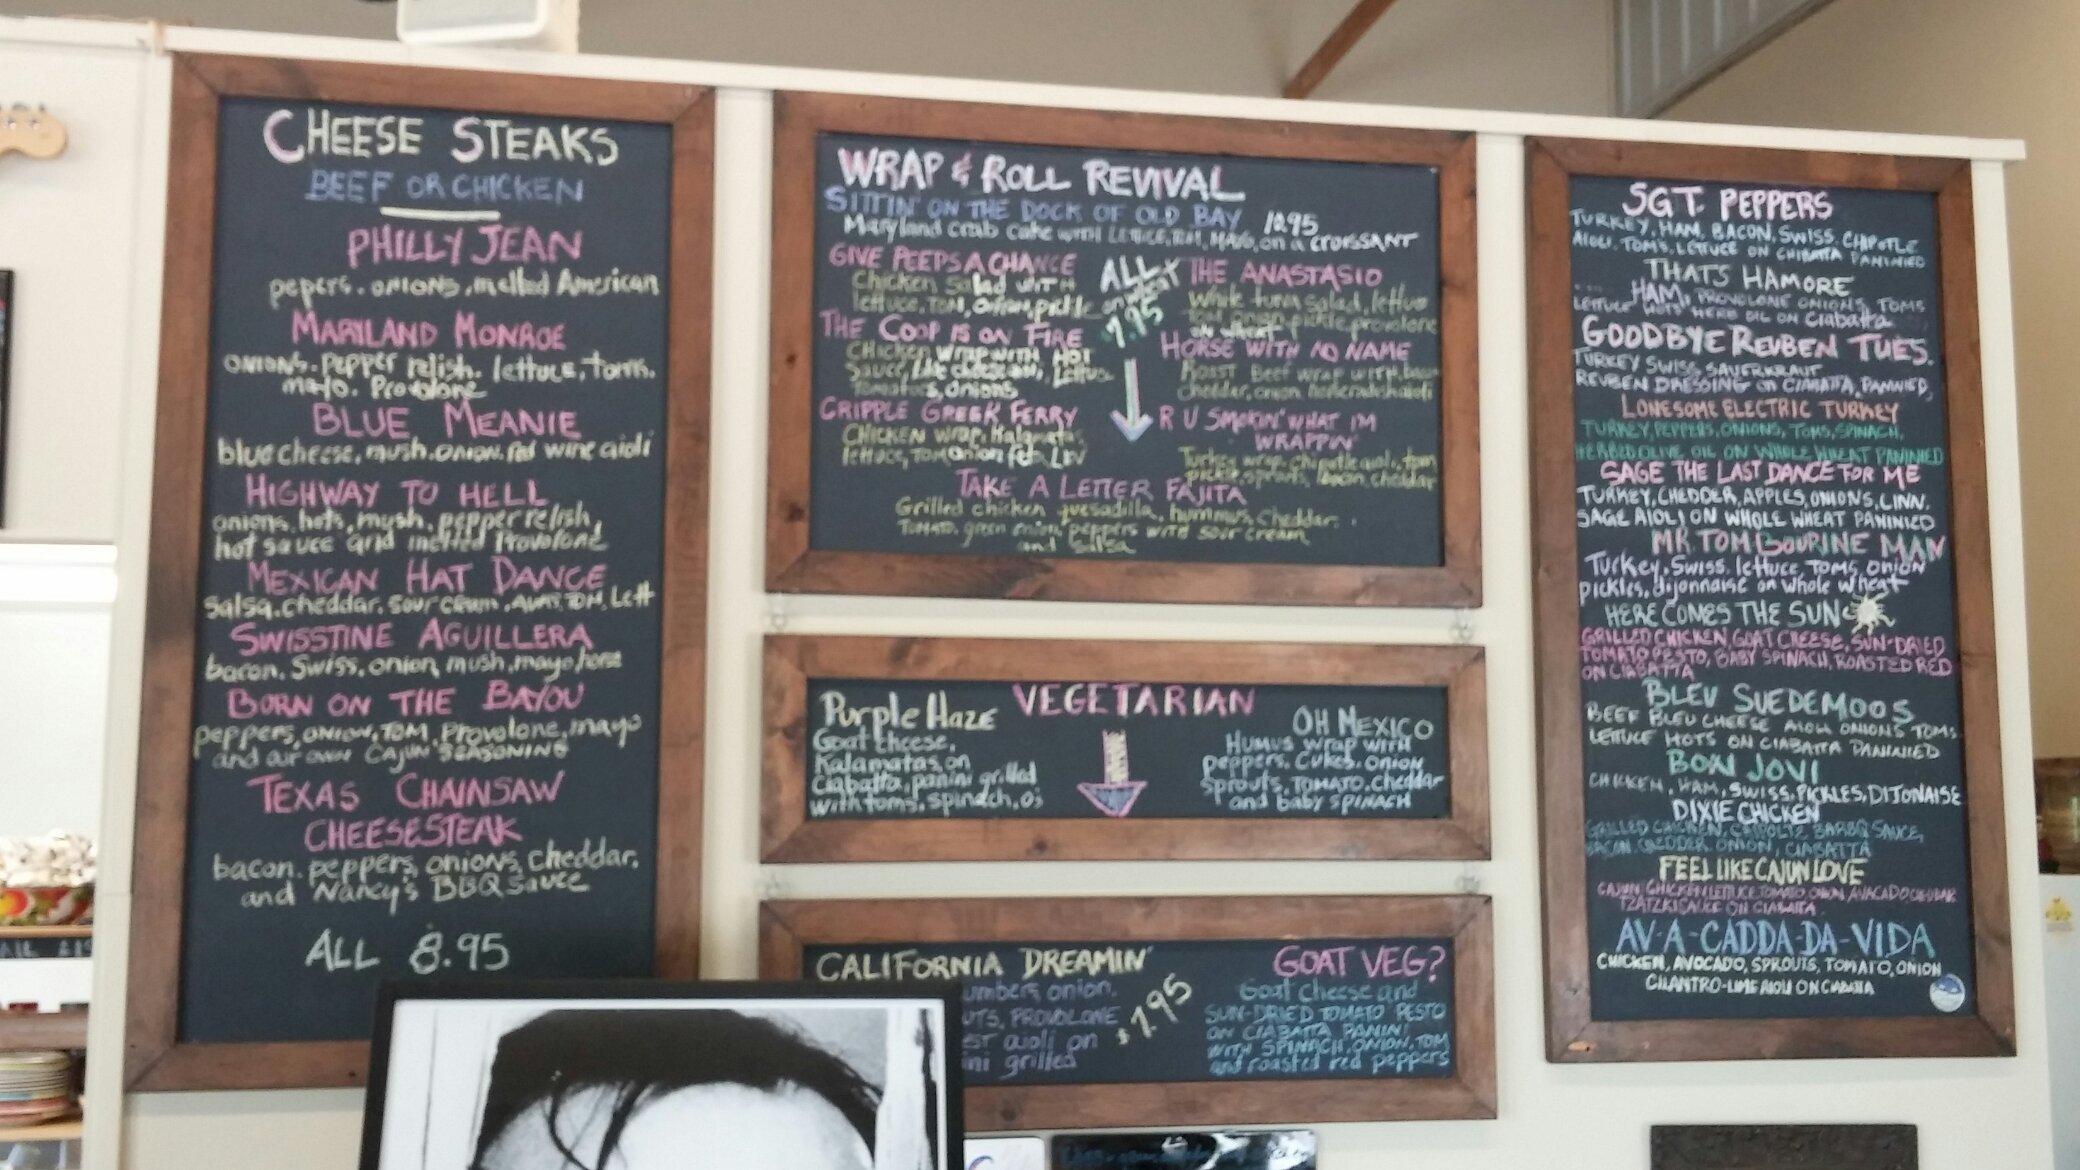 CHEESE STEAKS
BEEF OR CHICKEN
PHILLY JEAN
pepers. onions, melted American
MARYLAND MONROE
onions. pepper relish. lettuce, tom.
mayo. Provolone
BLUE MEANIE
blue cheese, mush. onion. red wine aioli
HIGHWAY TO HELL
onions, hots, mush, pepper relish,
hot sauce and melted Provolone
MEXICAN HAT DANCE
Salsa, cheddar, sour cream, TOM, Lett
SWISSTINE AGUILLERA
bacon, Swiss, onion, mush, mayo, horse
BORN ON THE BAYOU
peppers, onion, TOM, Provolone, mayo
and our own CAJUN SEASONING
TEXAS CHAINSAW
CHEESESTEAK
bacon. peppers, onions, cheddar,
and Nancy's BBQ sauce
ALL 8.95
WRAP & ROLL REVIVAL
SITTIN' ON THE DOCK OF OLD BAY 12.95
Maryland crab cake with LETTUCE, TOM, MAYO, on a CROISSANT
GIVE PEEPS A CHANCE
Chicken Salad WITH
lettuce, TOM, Onion, pickle on wheat
THE COOP IS ON FIRE
CHICKEN WRAP WITH HOT
Sauce, cheese, Lettuce
Tomatoes, Onions
CRIPPLE GREEK FERRY
CHICKEN wrap, Kalamatas,
lettuce, Tom, onion
ALL
7.95
THE ANASTASIO
White tuna salad, lettuce
tom onion pickle provolone
on wheat
HORSE WITH NO NAME
ROAST Beef wrap with
cheddar, onion, horseradish aioli
R U SMOKIN' WHAT I'M
WRAPPIN'
Turkey wrap, chipotle aioli, tom
pickle, sprouts, bacon, cheddar
TAKE A LETTER FAJITA
Grilled chicken quesadilla, hummus, cheddar,
Tomato, green onion, peppers with sour cream
and salsa
VEGETARIAN
Purple Haze
Goat cheese,
Kalamatas, on
Ciabatta, panini grilled
with toms, spinach, o's
OH MEXICO
HUMUS wrap with
peppers, cukes, onion
sprouts, TOMATO, cheddar
and baby SPINACH
CALIFORNIA DREAMIN'
umbers, onion,
UTS, PROVOLONE
est aioli on
ini grilled
$7.95
GOAT VEG?
Goat cheese and
SUN-DRIED TOMATO PESTO
ON CIABATTA PANINI
WITH SPINACH, ONION, TOM
and roasted red peppers
SGT. PEPPERS
TURKEY, HAM, BACON, SWISS, CHIPOTLE
AIOLI, TOMS, LETTUCE ON CIABATTA PANINIED
THATS HAMORE
HAM, PROVOLONE ONIONS, TOMS
LETTUCE HOTS HERB OIL ON Ciabatta
GOODBYE REUBEN TUES.
TURKEY SWISS SAUERKRAUT
REUBEN DRESSING on CIABATTA, PANINIED,
LONESOME ELECTRIC TURKEY
TURKEY, PEPPERS, ONIONS, TOMS, SPINACH,
HERBED OLIVE OIL ON WHOLE WHEAT PANINIED
SAGE THE LAST DANCE FOR ME
TURKEY, CHEDDER, APPLES, ONIONS, CINN.
SAGE AIOLI ON WHOLE WHEAT PANINIED
MR TOMBOURINE MAN
Turkey, Swiss, lettuce, Toms, onion
pickles, dijonnaise on whole wheat
HERE COMES THE SUN
GRILLED CHICKEN, GOAT CHEESE, SUN-DRIED
TOMATO PESTO, BABY SPINACH, ROASTED RED
ON CIABATTA
BLEU SUEDEMOOS
BEEF BLEU CHEESE AIOLI ONIONS TOMS
LETTUCE HOTS ON CIABATTA PANINIED
BON JOVI
CHICKEN, HAM, SWISS, PICKLES, DIJONAISE
DIXIE CHICKEN
GRILLED CHICKEN, CHIPOLTE BARBQ SAUCE,
BACON, CHEDDER, ONION, CIABATTA
FEEL LIKE CAJUN LOVE
CAJUN CHICKEN LETTUCE TOMATO ONION AVACADO CHEDDAR
TZATZKI SAUCE ON CIABATTA
AV-A-CADDA-DA-VIDA
CHICKEN, AVOCADO, SPROUTS, TOMATO, ONION
CILANTRO-LIME AIOLI ON CIABATTA